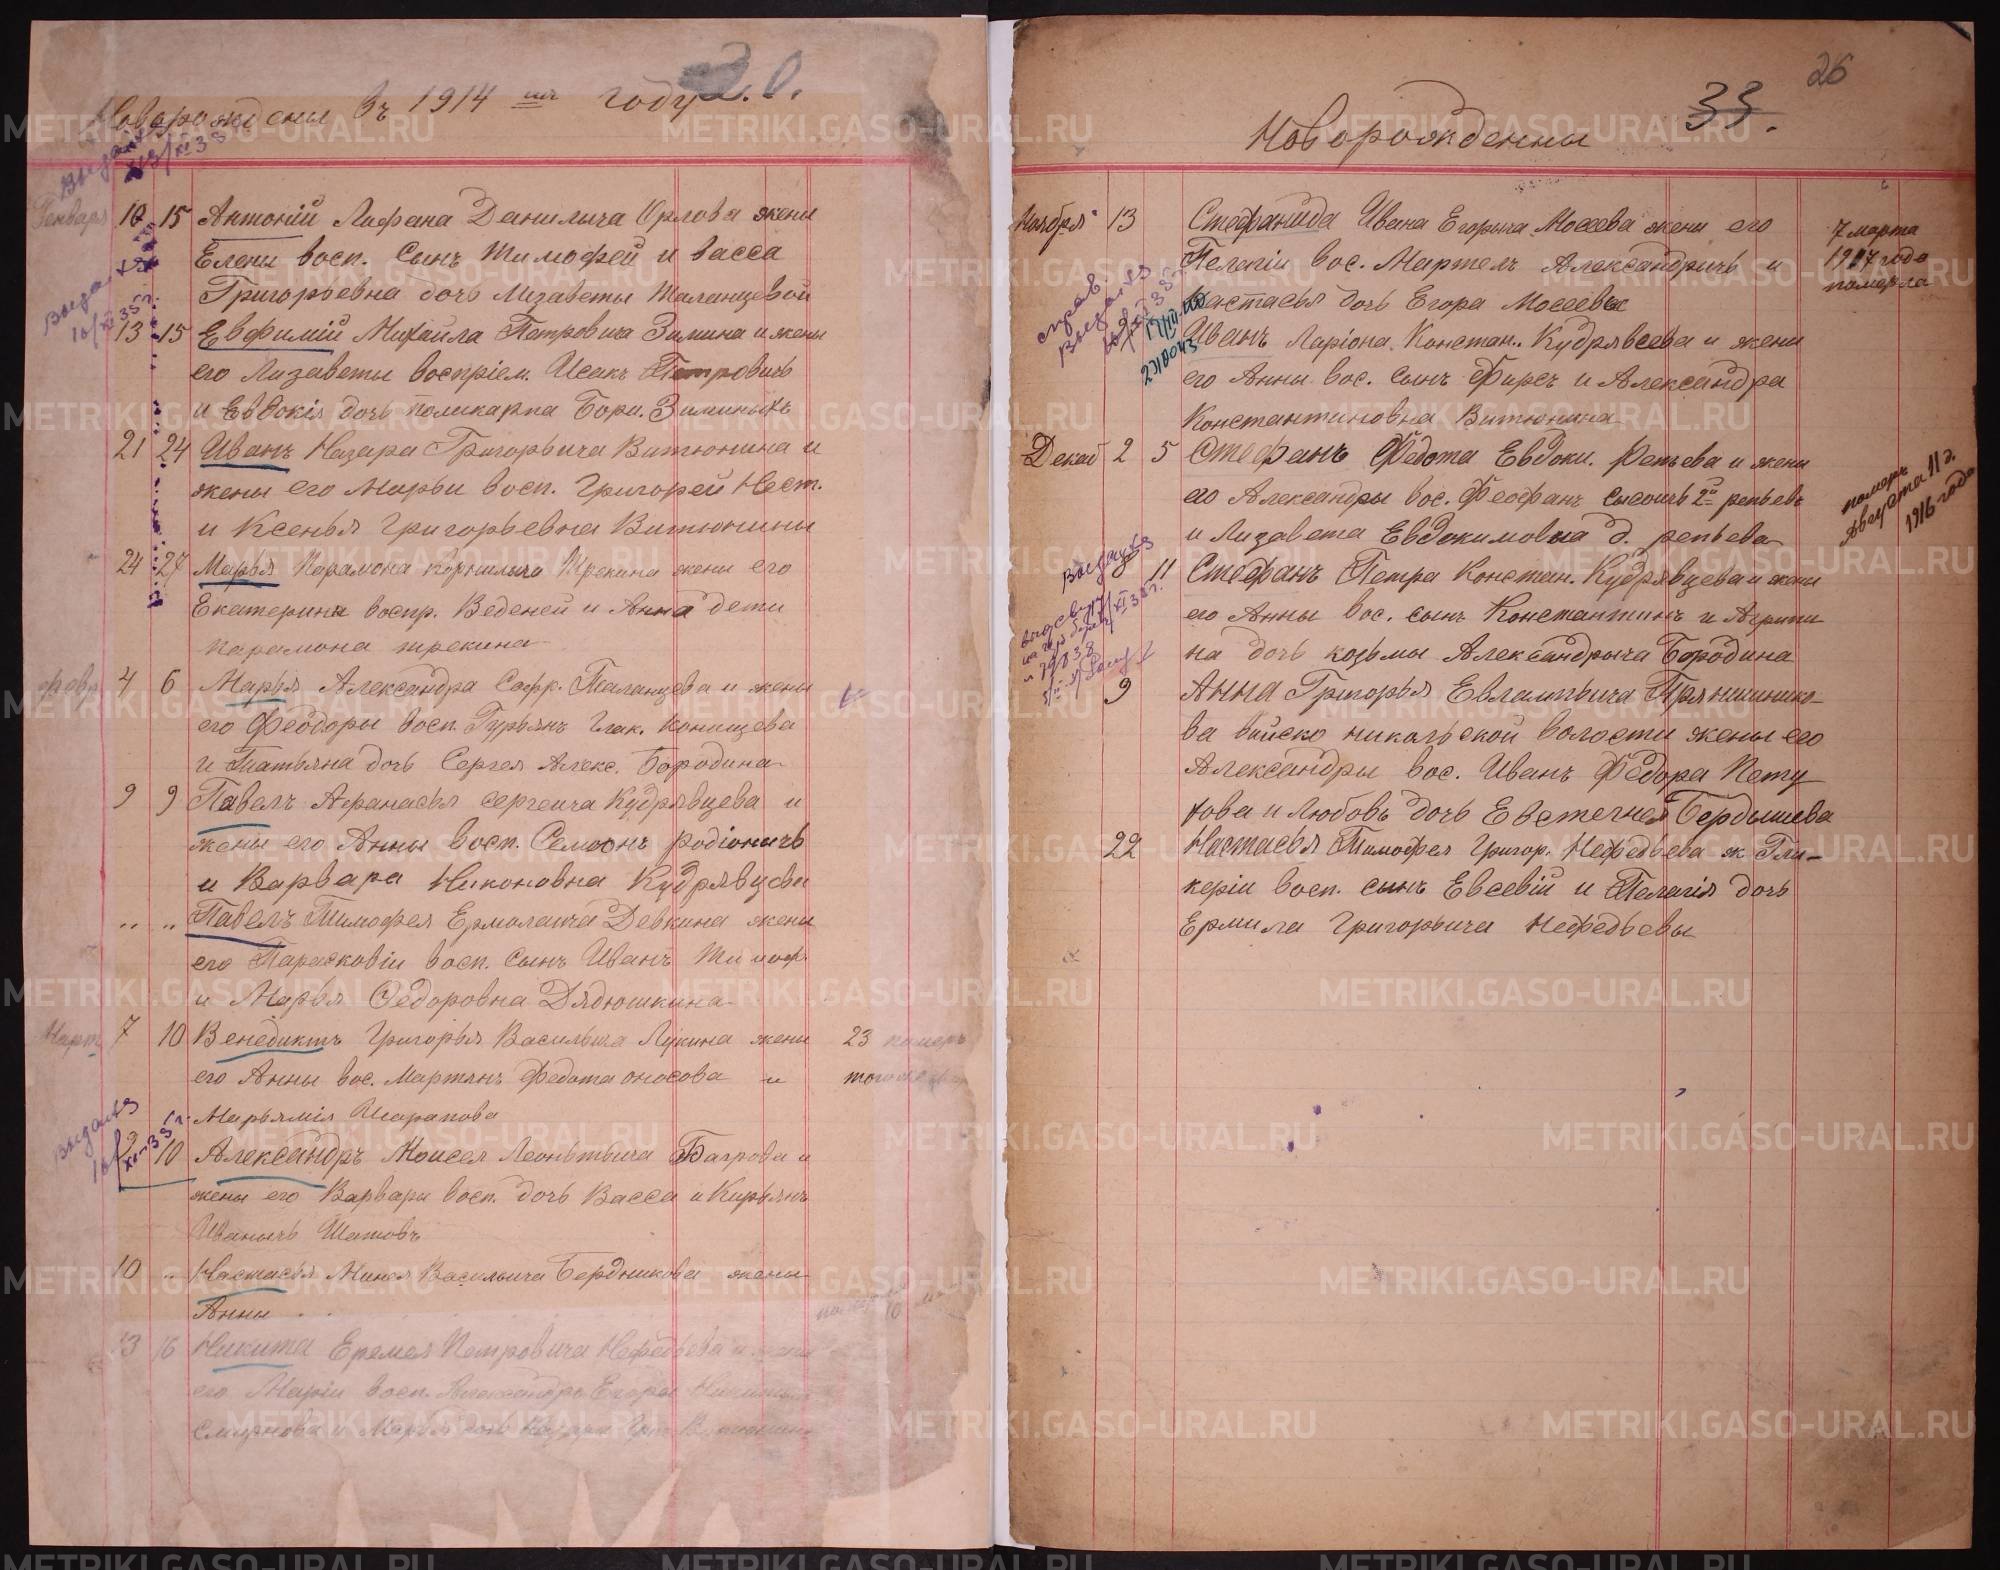 Новорождены въ 1914 мъ году 20.
Января 10 15 Антоній Лафана Данилыча Орлова жены
Елены восп. Сынъ Тимофей и Васса
Григорьевна дочь Лизаветы Таланцевой
13 15 Евфимій Михайла Петровича Зимина и жены
его Лизаветы воспріем. Исакъ Петровичъ
и Евдокія дочь Поликарпа Бори. Зиминыхъ
21 24 Иванъ Назара Григорьича Витюнина и
жены его Марьи восп. Григорей Нест.
и Ксенья Григорьевна Витюнины
24 27 Марья Парамона Корнилыча Трекина жены его
Екатерины воспр. Веденей и Анна дети
Парамона Трекина
Февр 4 6 Марья Александра Софр. Таланцева и жены
его Феодоры восп. Гурьянъ Глак. Конищева
и Татьяна дочь Сергея Алекс. Бородина
9 9 Павелъ Афанасья Сергеича Кудрявцева и
жены его Анны восп. Семіонъ Родіонычъ
и Варвара Никоновна Кудрявцевы
„ „ Павелъ Тимофея Ермолаича Девкина жены
его Парасковіи восп. Сынъ Иванъ Тимоф
и Марья Федоровна Дядюшкина
Март 7 10 Венедиктъ Григорья Васильича Лукина жены 23 померъ
его Анны вос. Мартянъ Федота Оносова и
Марьямія Шарапова
9 10 Александръ Моисея Леонтьича Багрова и
жены его Варвары восп. дочь Васса и Кирьянъ
Иванычъ Шатовъ
10 „ Настасья Минея Васильича Бердникова жены
Анны
13 16 Никита Еремея Петровича Нефедьева и жены
его Маріи восп. Александръ Егоры
Смирнова и Марья дочь Назара Григ. Витюнин
Выдана
Выдана
16/XI 35 г.
Выдана
26
33.
Новорожденны
Ноября 13 Стефанида Ивана Егорыча Мосеева жены его
Пелагіи вос. Мартелъ Александричъ и
Настасья дочь Егора Мосеевы
7 марта
1917 года
померла
Иванъ Ларіона Констан. Кудрявсева и жены
его Анны вос. сынъ Фирсъ и Александра
Константиновна Витюнина
Декаб 2 5 Стефанъ Федота Евдоки. Репьева и жены
его Александры вос. Феофанъ Сысоичъ 2й репьевъ
и Лизавета Евдокимовна д. репьева
померъ
Августа 11 г.
1916 года
11 Стефанъ Петра Констан. Кудрявцева и жены
его Анны вос. сынъ Константинъ и Агрипи
на дочь козьмы Александрыча Бородина
9 Анна Григорья Евлампьича Прянишнико-
ва Вийско никольской волости жены его
Александры вос. Иванъ Федора Пету
хова и Любовь дочь Евстегнея Бердышева
22 Настасья Тимофея Григор. Нефедьева ж Гли-
керіи восп. сынъ Евсевій и Пелагія дочь
Ермила Григорьича Нефедьевы
справ.
Выдана
Выдана
METRIKI.GASO-URAL.RU